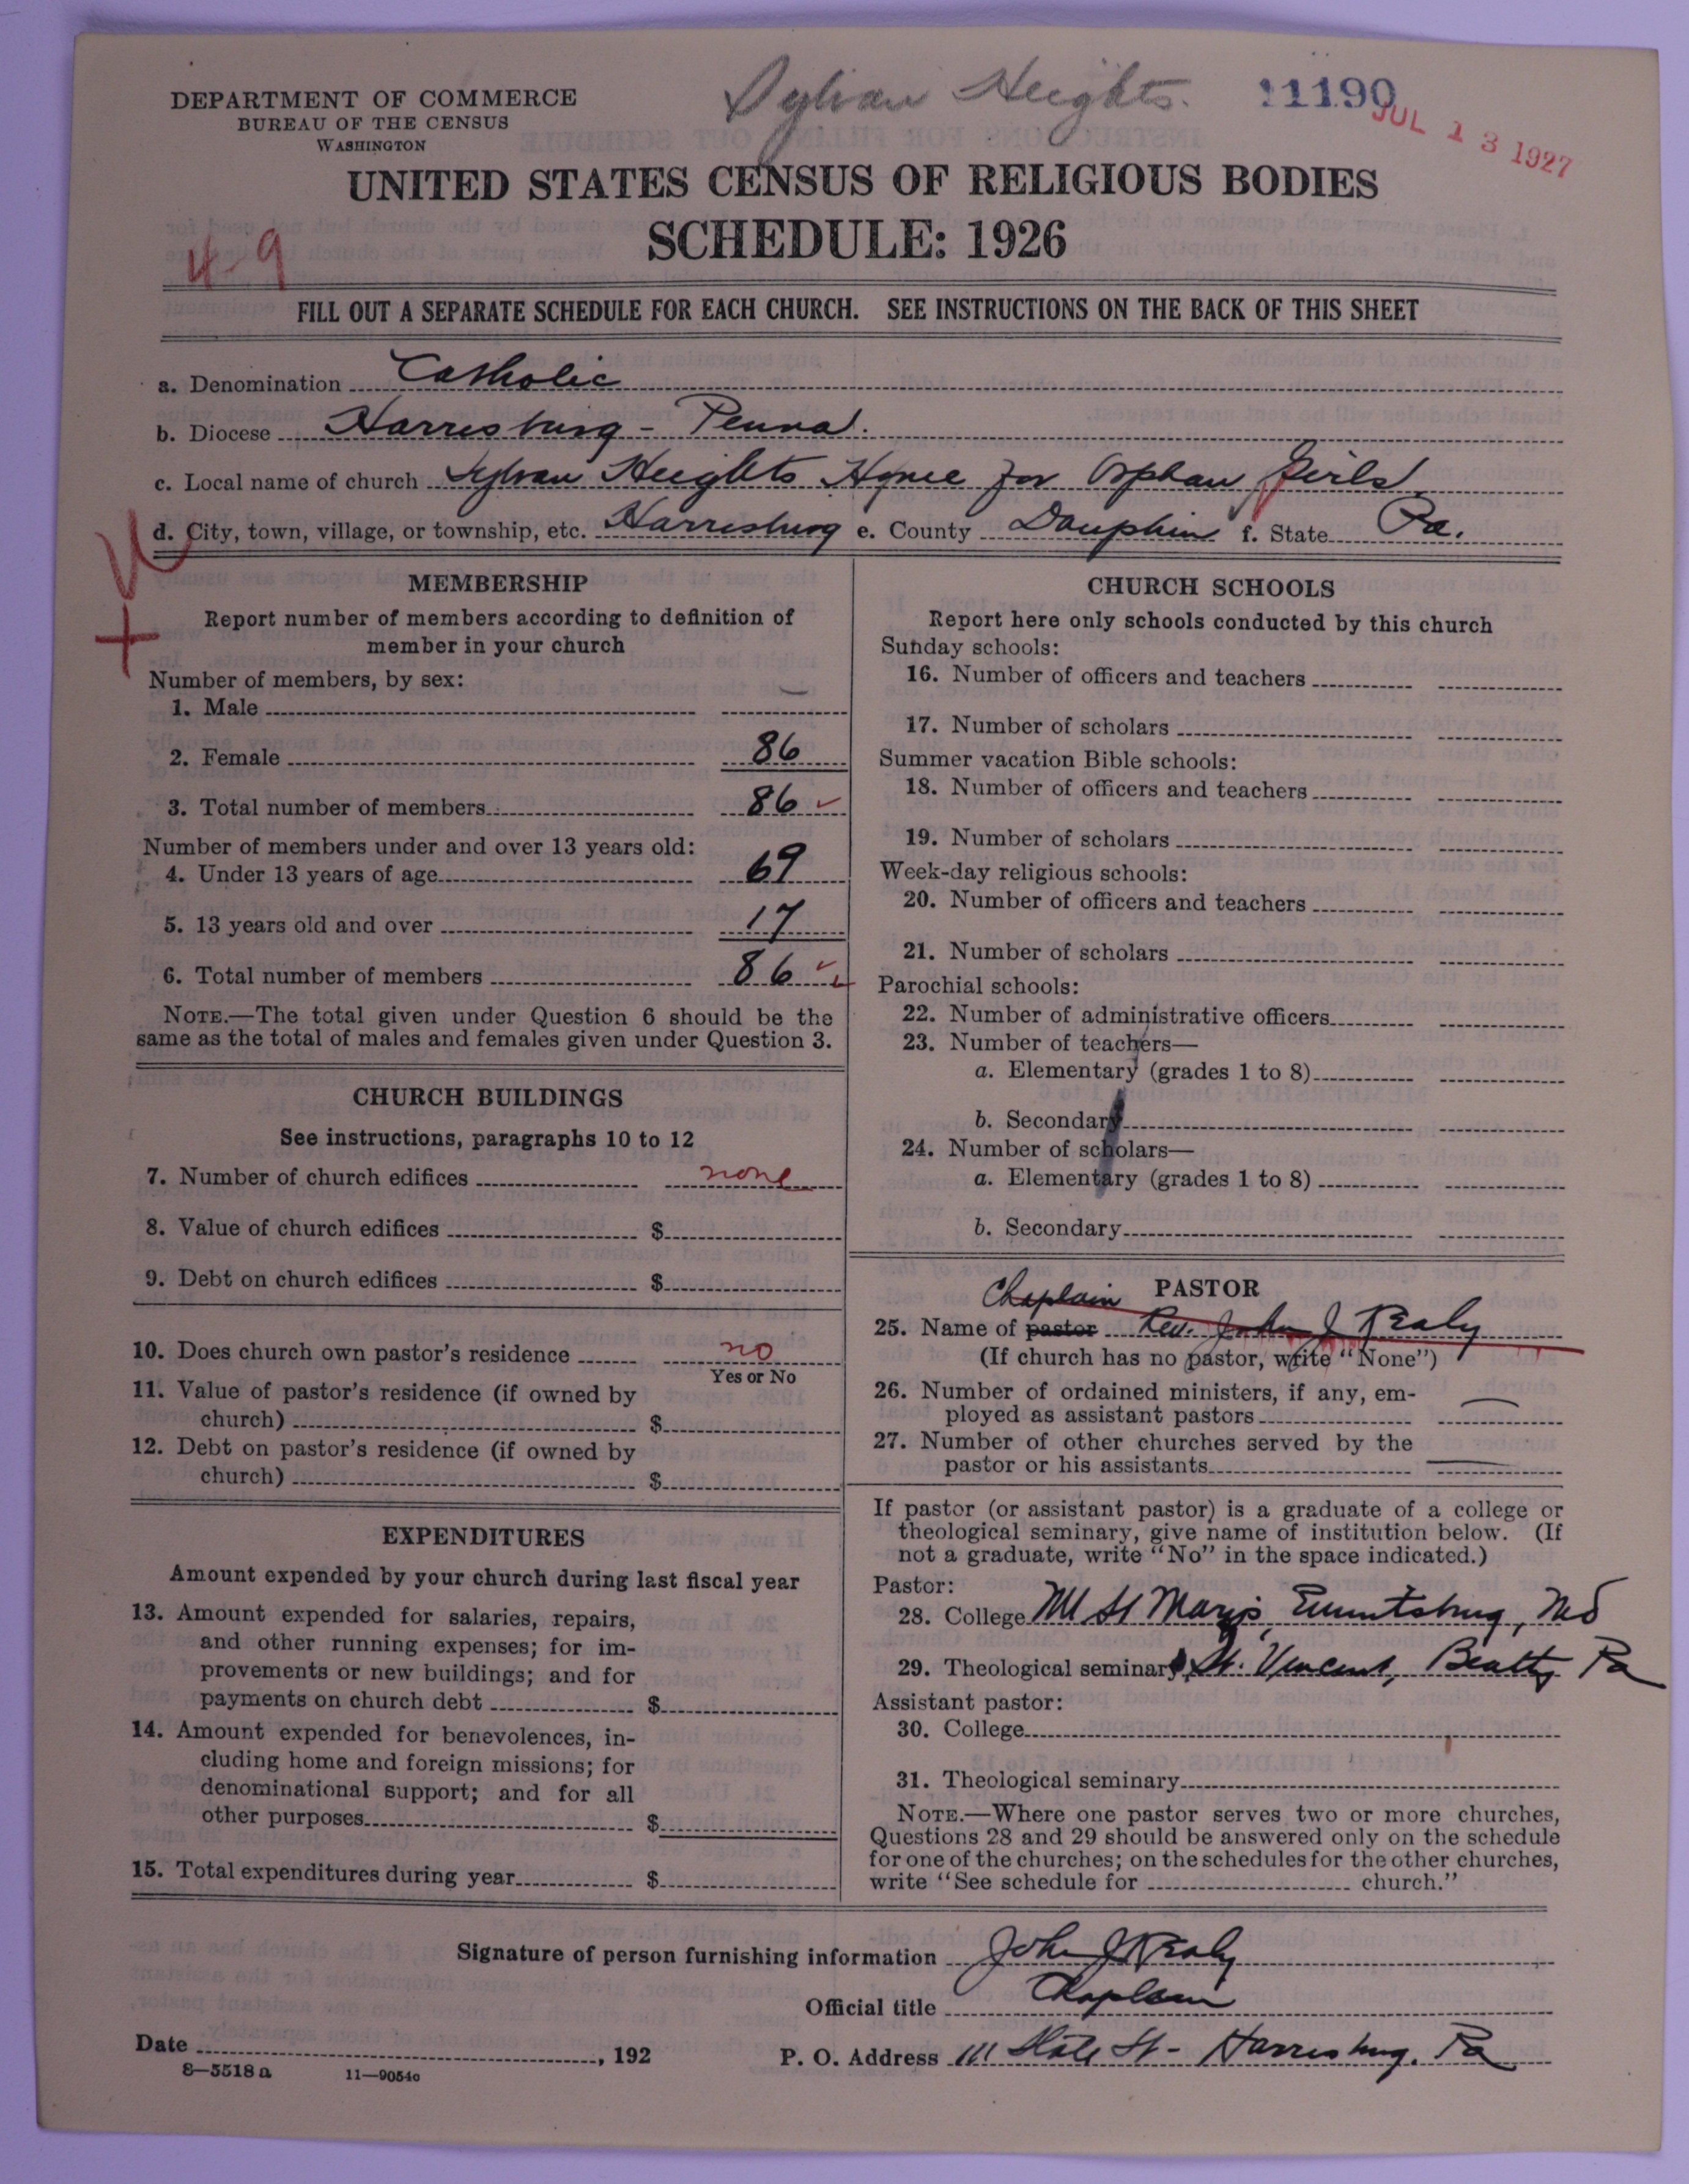 Sylvan Heights.
11190
JUL 13 1927
DEPARTMENT OF COMMERCE
BUREAU OF THE CENSUS
WASHINGTON
UNITED STATES CENSUS OF RELIGIOUS BODIES
SCHEDULE: 1926
4-9
FILL OUT A SEPARATE SCHEDULE FOR EACH CHURCH. SEE INSTRUCTIONS ON THE BACK OF THIS SHEET
a. Denomination Catholic
b. Diocese Harrisburg - Penna.
c. Local name of church Sylvan Heights Home for Orphan Girls
d. City, town, village, or township, etc. Harrisburg e. County Dauphin f. State Pa.
MEMBERSHIP
Report number of members according to definition of
member in your church
Number of members, by sex:
1. Male —
2. Female 86
3. Total number of members 86
Number of members under and over 13 years old:
4. Under 13 years of age 69
5. 13 years old and over 17
6. Total number of members 86
NOTE.—The total given under Question 6 should be the
same as the total of males and females given under Question 3.
CHURCH BUILDINGS
See instructions, paragraphs 10 to 12
7. Number of church edifices none
8. Value of church edifices $
9. Debt on church edifices $
10. Does church own pastor's residence no
Yes or No
11. Value of pastor's residence (if owned by
church) $
12. Debt on pastor's residence (if owned by
church) $
EXPENDITURES
Amount expended by your church during last fiscal year
13. Amount expended for salaries, repairs,
and other running expenses; for im-
provements or new buildings; and for
payments on church debt $
14. Amount expended for benevolences, in-
cluding home and foreign missions; for
denominational support; and for all
other purposes $
15. Total expenditures during year $
CHURCH SCHOOLS
Report here only schools conducted by this church
Sunday schools:
16. Number of officers and teachers
17. Number of scholars
Summer vacation Bible schools:
18. Number of officers and teachers
19. Number of scholars
Week-day religious schools:
20. Number of officers and teachers
21. Number of scholars
Parochial schools:
22. Number of administrative officers
23. Number of teachers—
a. Elementary (grades 1 to 8)
b. Secondary
24. Number of scholars—
a. Elementary (grades 1 to 8)
b. Secondary
PASTOR
Chaplain
25. Name of pastor Rev. John J Kealy
(If church has no pastor, write "None")
26. Number of ordained ministers, if any, em-
ployed as assistant pastors —
27. Number of other churches served by the
pastor or his assistants —
If pastor (or assistant pastor) is a graduate of a college or
theological seminary, give name of institution below. (If
not a graduate, write "No" in the space indicated.)
Pastor:
28. College Mt St Marys, Emmitsburg, Md
29. Theological seminary St. Vincent, Beatty Pa
Assistant pastor:
30. College
31. Theological seminary
NOTE.—Where one pastor serves two or more churches,
Questions 28 and 29 should be answered only on the schedule
for one of the churches; on the schedules for the other churches,
write "See schedule for church."
Signature of person furnishing information John J Kealy
Official title Chaplain
Date , 192
P. O. Address 111 State St - Harrisburg. Pa
8—5518 a 11—9054o